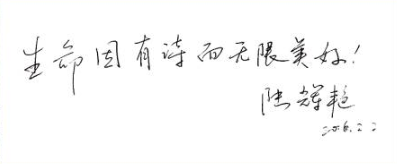 生命因有诗而无限美好！
陆辉艳
2016.2.2